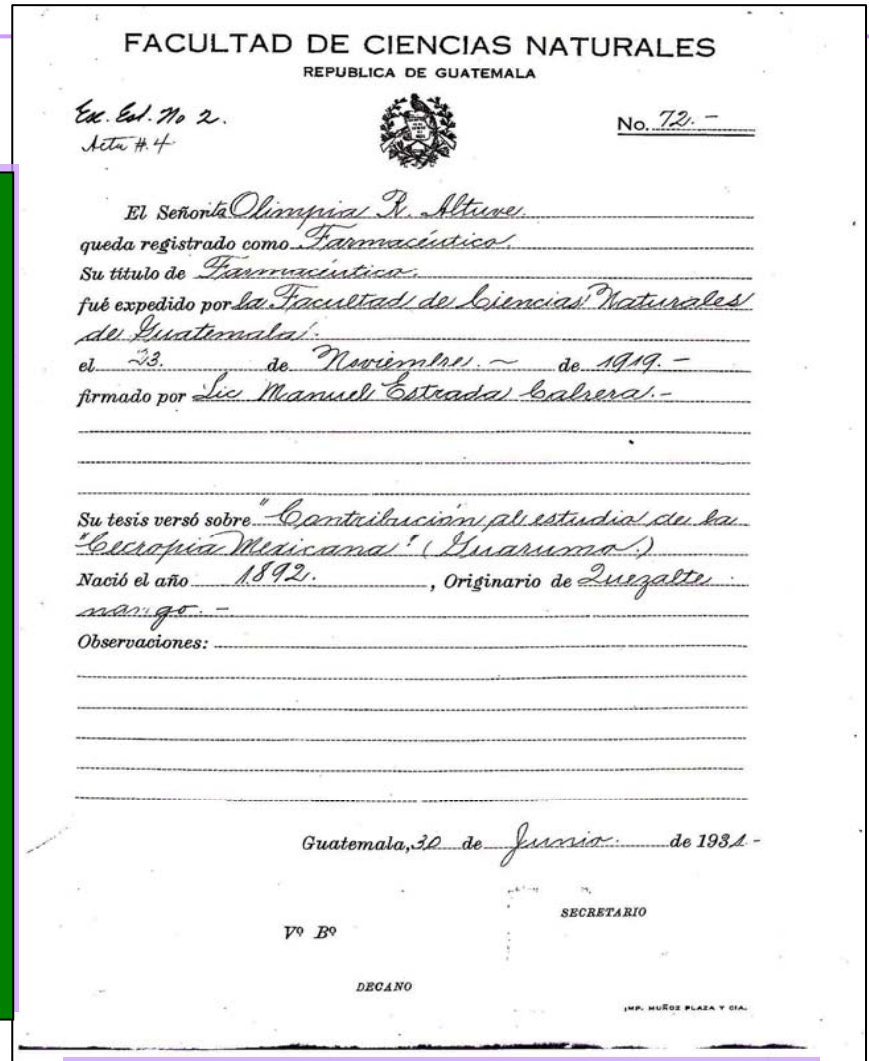 FACULTAD DE CIENCIAS NATURALES
REPUBLICA DE GUATEMALA
Ex. Est. No 2.
Acta #.4
No. 72.-
El Señorita Olimpia R. Altuve.
queda registrado como Farmacéutico.
Su título de Farmacéutico.
fué expedido por la Facultad de Ciencias Naturales
de Guatemala.
el 23. de Noviembre. ~ de 1919.-
firmado por Lic Manuel Estrada Cabrera.-
Su tesis versó sobre "Contribución al estudio de la
"Cecropia Mexicana" (Guarumo.)
Nació el año 1892. , Originario de Quezalte
nango.-
Observaciones:
Guatemala, 30 de Junio. de 1931-
SECRETARIO
Vº Bº
DECANO
IMP. MUÑOZ PLAZA Y CIA.